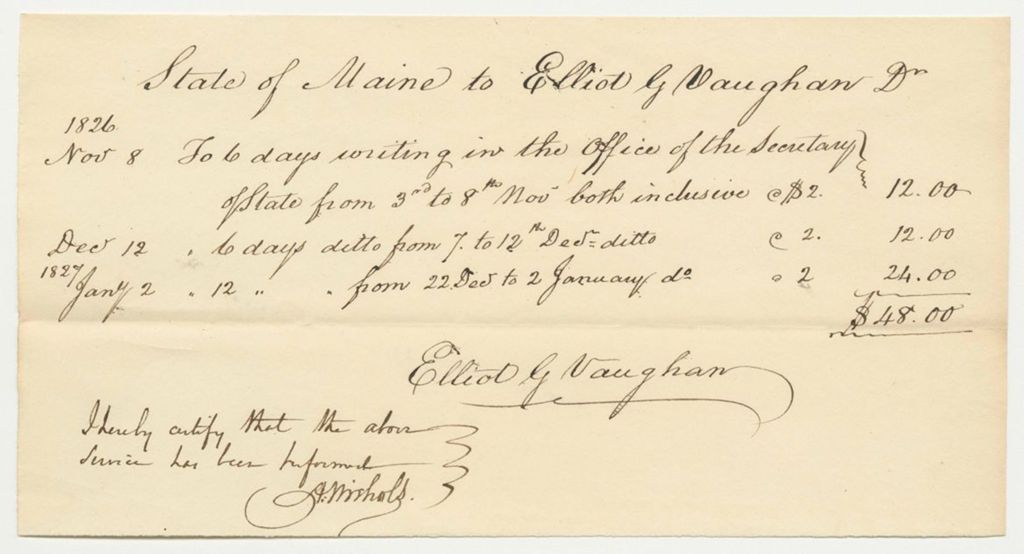 State of Maine to Elliot G Vaughan Dr
1826
Nov 8 To 6 days writing in the Office of the Secretary
of State from 3rd to 8th Nov both inclusive @ $2. 12.00
Decr 12 " 6 days ditto from 7. to 12th Decr ditto @ 2. 12.00
1827
Jany 2 " 12 " " from 22 Decr to 2 January do @ 2 24.00
$48.00
Elliot G Vaughan
I hereby certify that the above
service has been performed
A. Nichols.